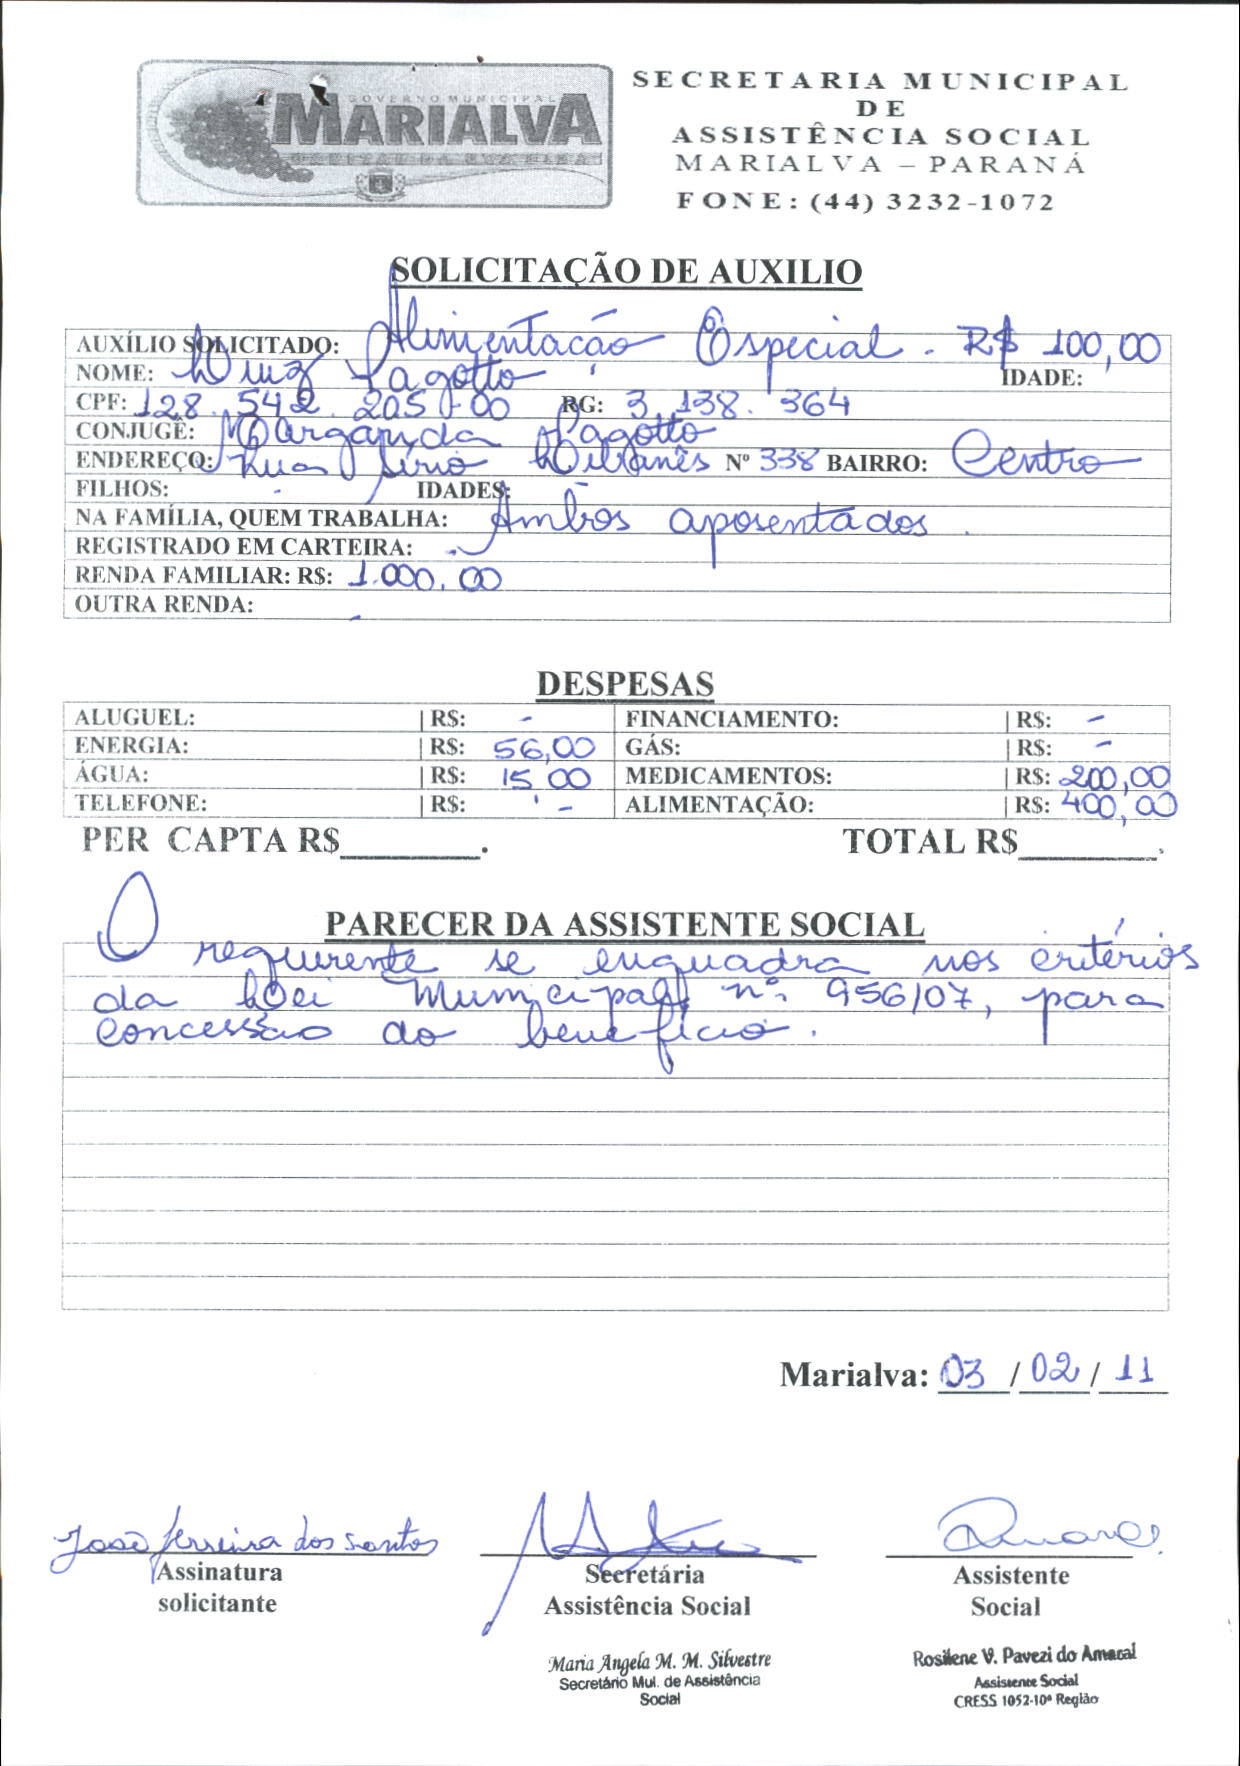 GOVERNO MUNICIPAL
MARIALVA
CAPITAL DA UVA FINA
SECRETARIA MUNICIPAL
DE
ASSISTÊNCIA SOCIAL
MARIALVA – PARANÁ
FONE: (44) 3232-1072
SOLICITAÇÃO DE AUXILIO
AUXÍLIO SOLICITADO: Alimentação Especial. R$ 100,00
NOME: Luiz Pagotto IDADE:
CPF: 128.542.205-00 RG: 3.138.364
CONJUGÊ: Margarida Pagotto
ENDEREÇO: Rua Nº 338 BAIRRO: Centro
FILHOS: - IDADES:
NA FAMÍLIA, QUEM TRABALHA: Ambos aposentados.
REGISTRADO EM CARTEIRA: -
RENDA FAMILIAR: R$: 1.000,00
OUTRA RENDA: -
DESPESAS
ALUGUEL: | R$: - FINANCIAMENTO: | R$: -
ENERGIA: | R$: 56,00 GÁS: | R$: -
ÁGUA: | R$: 15,00 MEDICAMENTOS: | R$: 200,00
TELEFONE: | R$: - ALIMENTAÇÃO: | R$: 400,00
PER CAPTA R$________. TOTAL R$________.
PARECER DA ASSISTENTE SOCIAL
O requerente se enquadra nos critérios
da Lei Municipal nº 956/07, para
concessão do benefício.
Marialva: 03 / 02 / 11
José Ferreira dos Santos
Assinatura Secretária Assistente
solicitante Assistência Social Social
Maria Angela M. M. Silvestre Rosilene V. Pavezi do Amaral
Secretário Mul. de Assistência Assistente Social
Social CRESS 1052-10ª Região